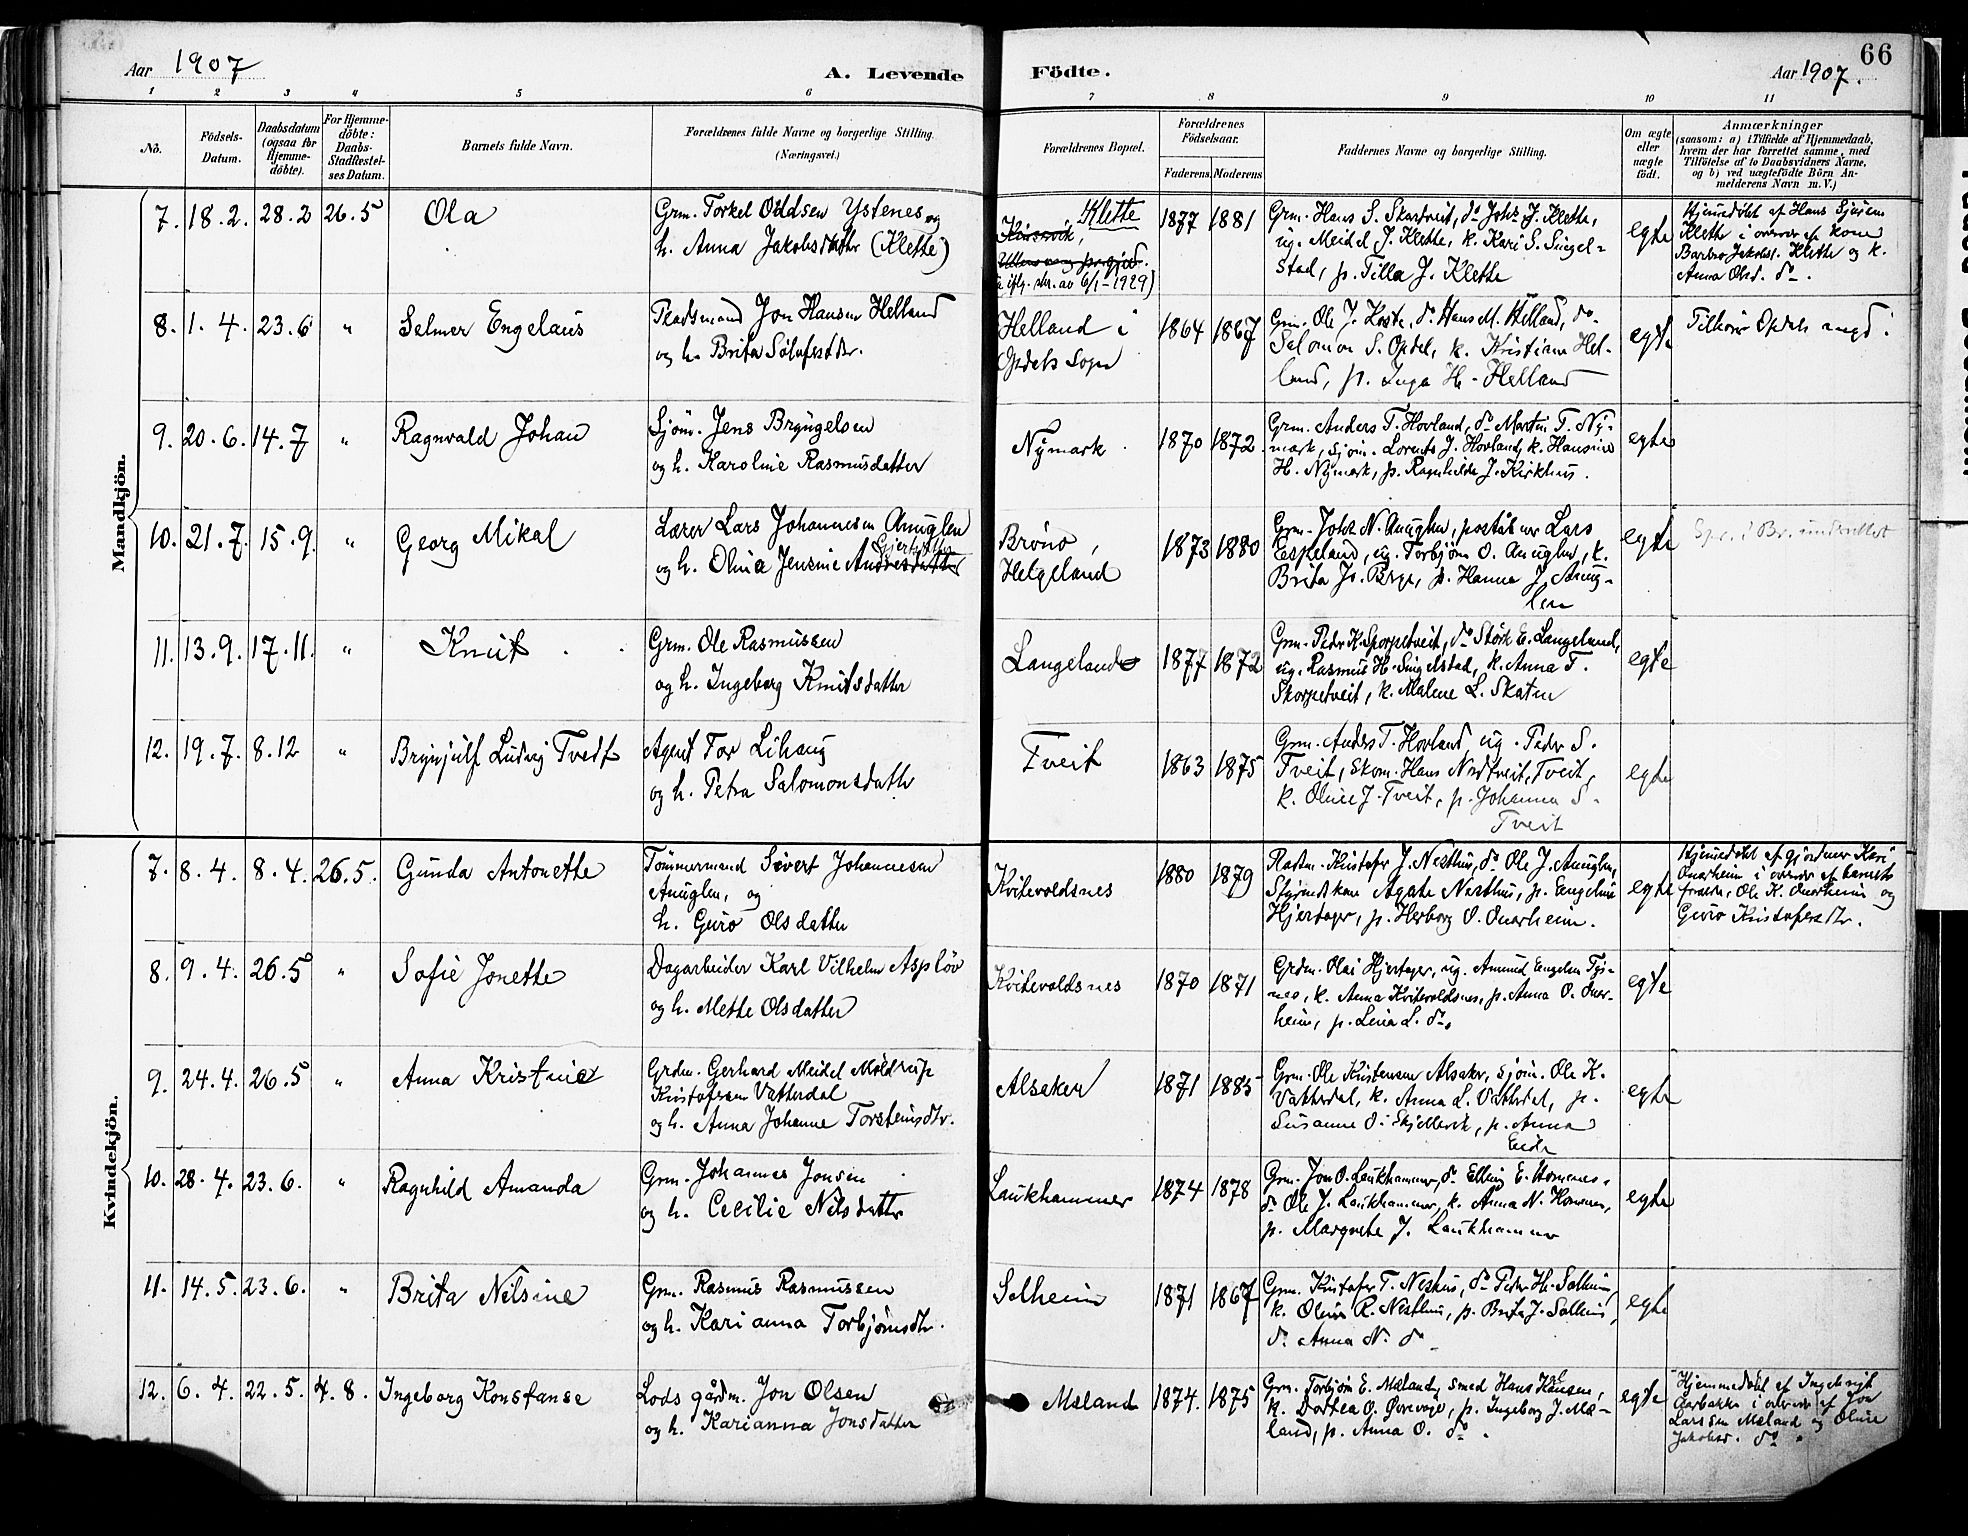 66
Aar 1907
A. Levende Fødte.
Aar 1907.
1 2 3 4 5 6 7 8 9 10 11
No.
Födsels-
Datum.
Daabsdatum
(ogsaa for
Hjemme-
döbte).
For Hjemme-
döbte:
Daabs-
Stadfæstel-
ses Datum.
Barnets fulde Navn.
Forældrenes fulde Navne og borgerlige Stilling.
(Næringsvei.)
Forældrenes Bopæl.
Forældrenes
Födselsaar.
Faderens. Moderens
Faddernes Navne og borgerlige Stilling.
Om ægte
eller
uægte
födt.
Anmærkninger
(saasom: a) i Tilfælde af Hjemmedaab,
hvem der har forrettet samme, med
Tilföielse af to Daabsvidners Navne,
og b) ved uægtefödte Börn An-
melderens Navn m. V.)
Mandkjön.
7. 18.2. 28.2 26.5 Ola
Grm. Torkel Oddsen Ystenes og
h. Anna Jakobsdatter (Klette)
Klette
iflg. skr. av 6/1-1929)
1877 1881
Grm. Hans S. Skartveit, do Johs J. Klette,
ug. Meidel J. Klette, k. Kari S. Singel-
stad, p. Tilla J. Klette
egte
Hjemedøbt af Hans
Klette i overvær af kone
Barbro Jakobs. Klette og k.
Anna Olsd. do.
8. 1.4. 23.6 " Selmer Engelaus
Pladsmand Jon Hansen Helland
og h. Brita Sølvfestdtr.
Helland i
Opdals Sogn
1864 1867
Grm. Ole J. Koste, do Hans M. Helland, do.
Salomon S. Opdal, k. Kristiane Hel-
land, p. Inga H. Helland
egte
Tilhører Opdals sogn
9. 20.6. 14.7 " Ragnvald Johan
Sjöm. Jens Bryngelsen
og h. Karoline Rasmusdatter
Nymark
1870 1872
Grm. Anders T. Hovland, do Martin T. Ny-
mark, sjöm. Lorents J. Hovland, k. Hansine
H. Nymark, p. Ragnhilda J. Kirkhus.
egte
10. 21.7. 15.9. " Georg Mikal
Lærer Lars Johannesen Anuglen
og h. Olina Jensine Andresdatter
Brönö,
Helgeland
1873 1880
Grm. Johs N. Anuglen, poståbner Lars
Espeland, ug. Torbjörn O. Anuglen, k.
Brita Js. Berge, p. Hanna J. Anug-
len
egte
11. 13.9. 17.11. " Knut
Grm. Ole Rasmussen
og h. Ingeborg Knutsdatter
Langeland
1877 1872
Grm. Peder K. Skorpetveit, do Størk E. Langeland,
ug. Rasmus H. Singelstad, k. Anna T.
Skorpetveit, k. Malene L. Skaten
egte
12. 19.7. 8.12 " Brynjulf Ludvig Tvedt
Agent Tor Lihaug
og h. Petra Salomonsdatter
Tveit
1863 1875
Grm. Anders T. Hovland, ug. Peder S.
Tveit, Skom. Hans Nedtveit, Tveit,
k. Oline J. Tveit, p. Johanna S.
Tveit
egte
Kvindekjön.
7. 8.4. 8.4. 26.5. Gunda Antonette
Tömmermand Sivert Johannesen
Anuglen, og
h. Guro Olsdatter
Kvitevoldsnes
1880 1879
Kristofer J. Nesthus, do Ole J. Anuglen,
Agate Nesthus, p. Engeline
Hjertager, p. Herborg O. Onarheim.
egte
Hjemedøbt af gjordmor Kari
Onarheim i overvær af barnets
forældre, Ole K. Onarheim og
Guro Kristofersdtr.
8. 9.4. 26.5 " Sofie Jonette
Dagarbeider Karl Vilhelm Asplöv
og h. Mette Olsdatter
Kvitevoldsnes
1870 1871
Grdm. Olai Hjertager, ug. Amund Engelsen Tys-
nes, k. Anna Kvitevoldsnes, p. Anna O. Onar-
heim, p. Lina L. do.
egte
9. 24.4. 26.5 " Anna Kristine
Grdm. Gerhard Meidel Möldrup
Kristofersen Vatterdal
og h. Anna Johanne Torsteinsdtr.
Alsaker
1871 1885
Grm. Ole Kristensen Alsaker, sjöm. Ole K.
Vatterdal, k. Anna L. Vatterdal, p.
Susanne O. Skjellevik, p. Anna
Eide
egte
10. 28.4. 23.6. " Ragnhild Amanda
Grm. Johannes Jonsen
og h. Cecilie Nilsdatter
Laukhammer
1874 1878
Grm. Jon O. Laukhammer, do Elling E. Homenes.
do Ole J. Laukhammer, k. Anna N.
p. Margrete J. Laukhammer
egte
11. 14.5. 23.6. " Brita Nilsine
Grm. Rasmus Rasmussen
og h. Karianna Torbjörnsdtr.
Solheim
1871 1867
Grm. Kristofer T. Nesthus, do Peder H. Solheim,
k. Oline R. Nesthus, p. Brita J. Solheim,
do. Anna N. do
egte
12. 6.4. 22.5. 4.8. Ingeborg Konstanse
Lods gårdm. Jon Olsen
og h. Karianna Jonsdatter
Mæland
1874. 1875
Grm. Torbjörn E. Mæland, smed Hans Hansen,
k. Dortea O. p. Ingeborg J. Mæ-
land, p. Anna O. do.
egte
Hjemmedøbt af Ingebrigt
i overvær af Jon
Larssen Mæland og Oline
Jakobsd. do